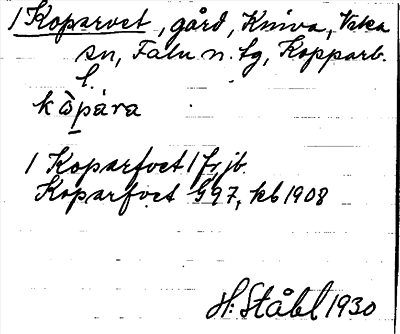 / Koparvet, gård, Kniva, Vika
sn, Falu n. tg, Kopparb.
l.
kòpàra
/ Koparfvet / fr jb.
Koparfvet G 97, kb 1908
H. Ståhl 1930